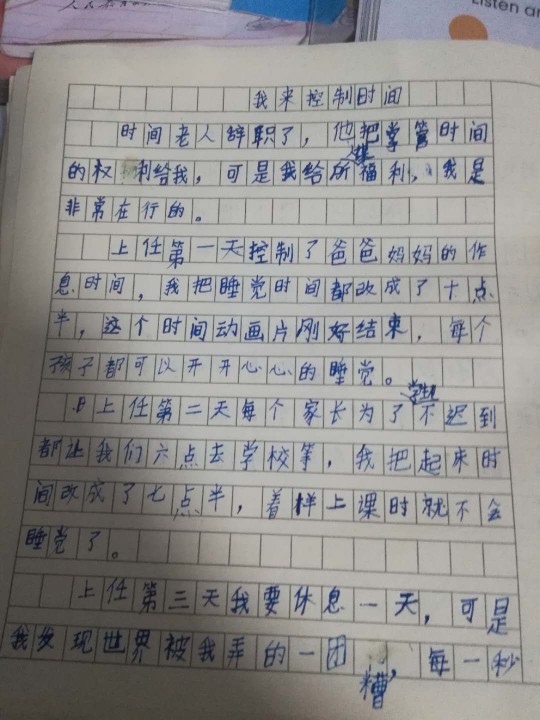 Listen an
我来控制时间
时间老人辞职了，他把掌管时间
的权利给我，可是我给所人类福利，我是
非常在行的。
上任第一天控制了爸爸妈妈的作
息时间，我把睡觉时间都改成了十点
半，这个时间动画片刚好结束，每个
孩子都可以开开心心的睡觉。
上任第二天每个家长为了学生不迟到
都让我们六点去学校等，我把起来时
间改成了七点半，着样上课时就不会
睡觉了。
上任第三天我要休息一天，可是
我发现世界被我弄的一团糟，每一秒